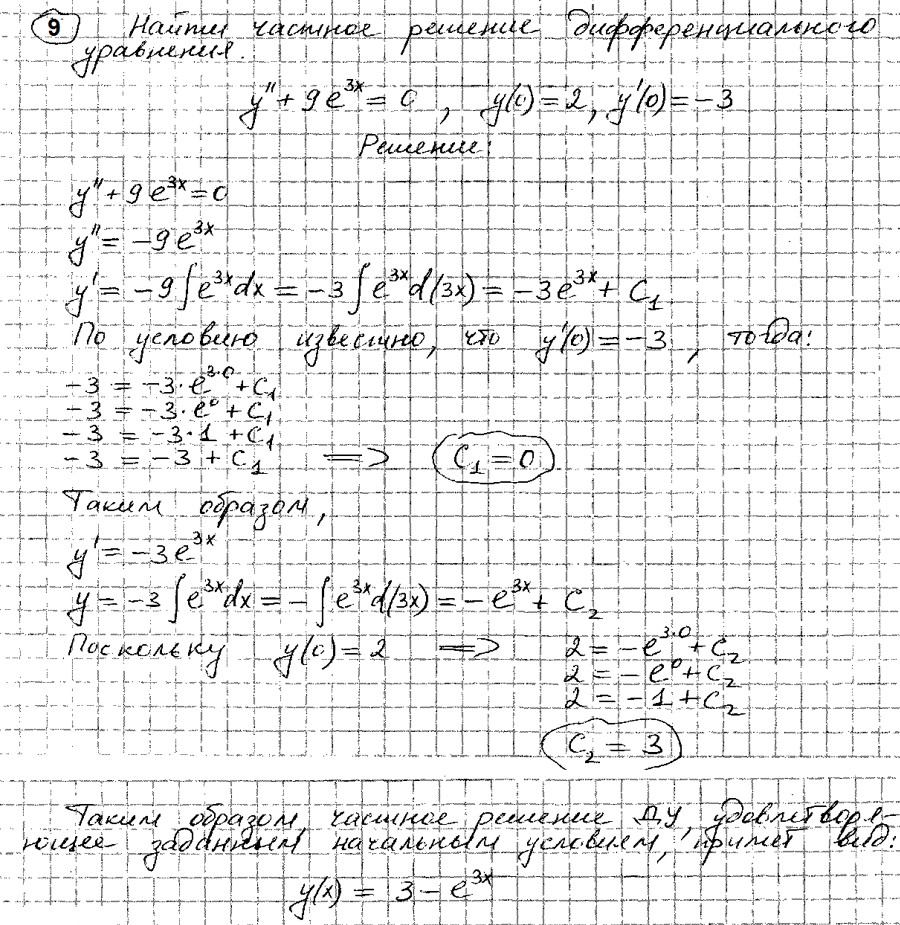 9 Найти частное решение дифференциального
уравнения.
y'' + 9e^{3x} = 0 , y(0) = 2, y'(0) = -3
Решение:
y'' + 9e^{3x} = 0
y'' = -9e^{3x}
y' = -9∫e^{3x}dx = -3∫e^{3x}d(3x) = -3e^{3x} + C₁
По условию известно, что y'(0) = -3 , тогда:
-3 = -3·e^{3·0} + C₁
-3 = -3·e⁰ + C₁
-3 = -3·1 + C₁
-3 = -3 + C₁ => C₁ = 0
Таким образом,
y' = -3e^{3x}
y = -3∫e^{3x}dx = -∫e^{3x}d(3x) = -e^{3x} + C₂
Поскольку y(0) = 2 => 2 = -e^{3·0} + C₂
2 = -e⁰ + C₂
2 = -1 + C₂
C₂ = 3
Таким образом, частное решение ДУ, удовлетворя-
ющее заданным начальным условием, примет вид:
y(x) = 3 - e^{3x}